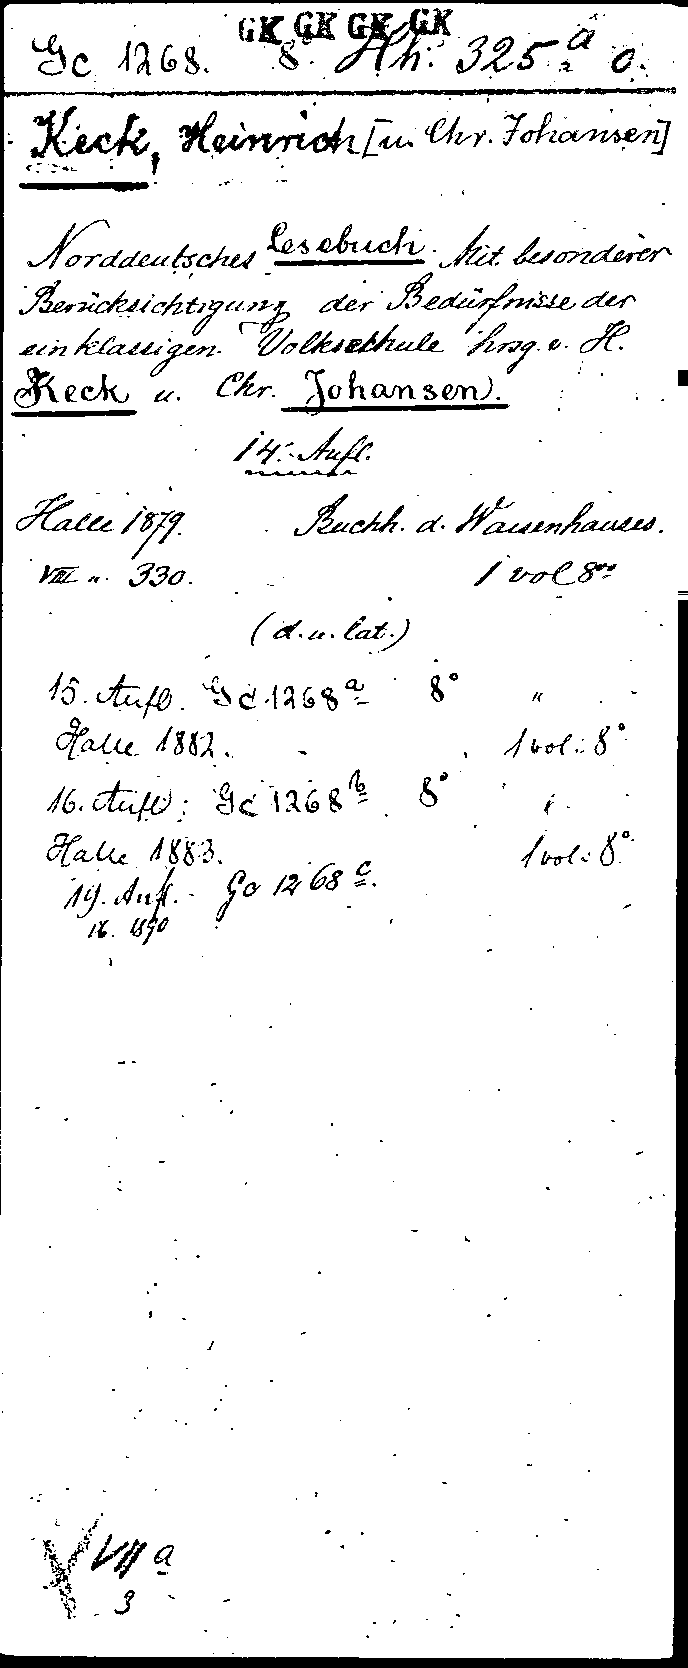 GK GK GK GK
Gc 1268. 8° Hh: 325 a o.
Keck, Heinrich [u. Chr. Johansen]
Norddeutsches Lesebuch. Mit besonderer
Berücksichtigung der Bedürfnisse der
einklassigen Volksschule hrsg. v. H.
Keck u. Chr. Johansen.
14. Aufl.
Halle 1879. Buchh. d. Waisenhauses.
VIII u. 330. 1 vol 8vo
(d. u. lat.)
15. Aufl. Gc 1268 a 8° "
Halle 1882. 1 vol: 8°
16. Aufl: Gc 1268 b 8° "
Halle 1883. 1 vol: 8°
19. Aufl. Gc 1268 c.
ib. 1890
VII a
3